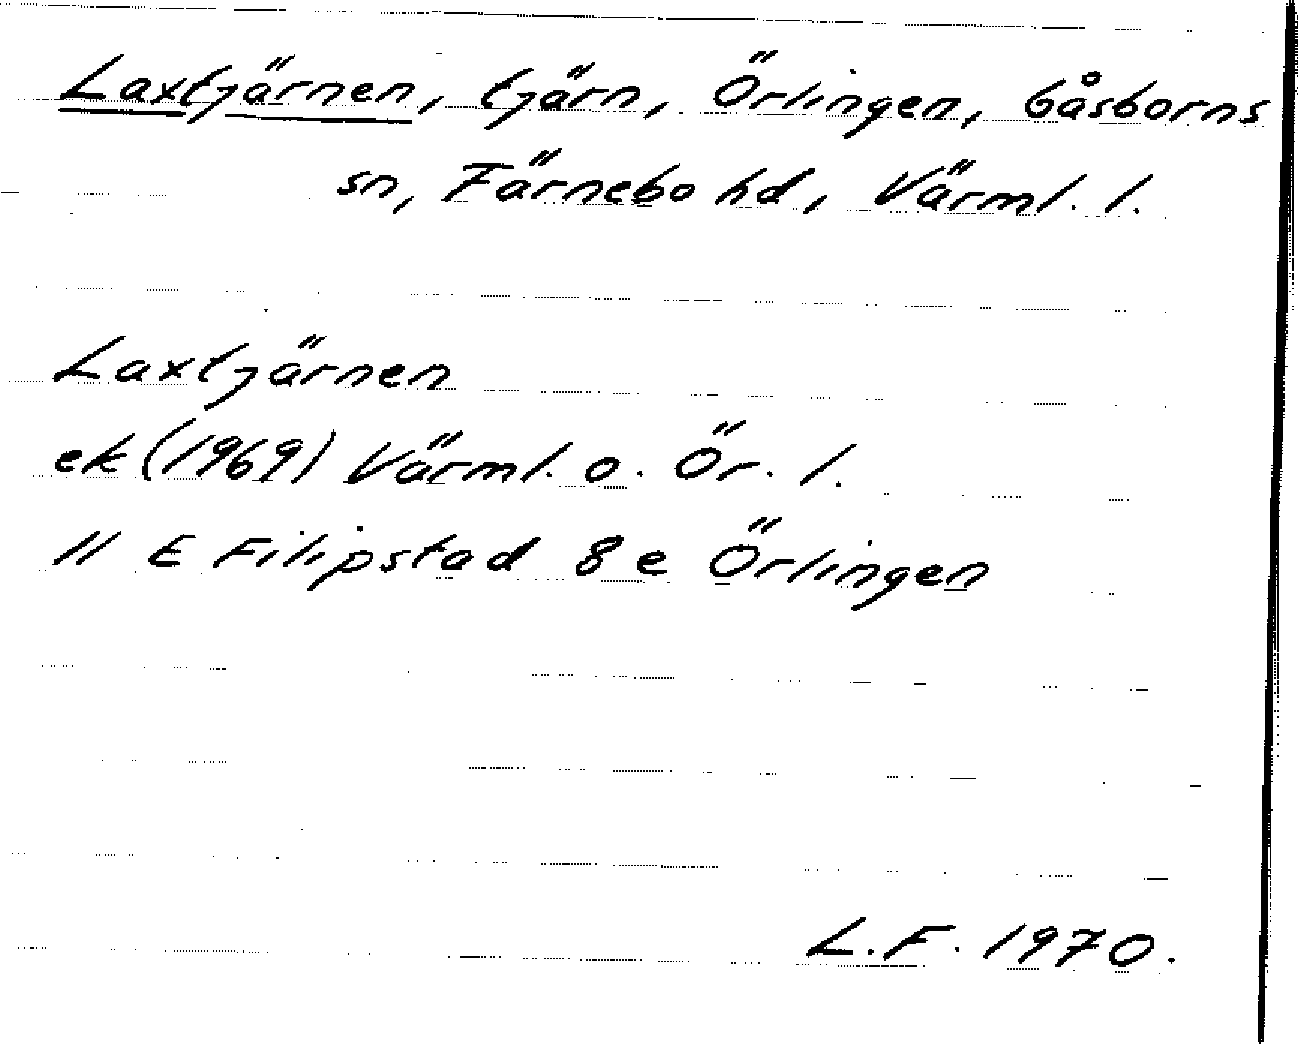 Laxtjärnen, tjärn, Örlingen, Gåsborns
sn, Färnebo hd, Värml. l.
Laxtjärnen
ek (1969) Värml. o. Ör. l.
11 E Filipstad 8 e Örlingen
L.F. 1970.